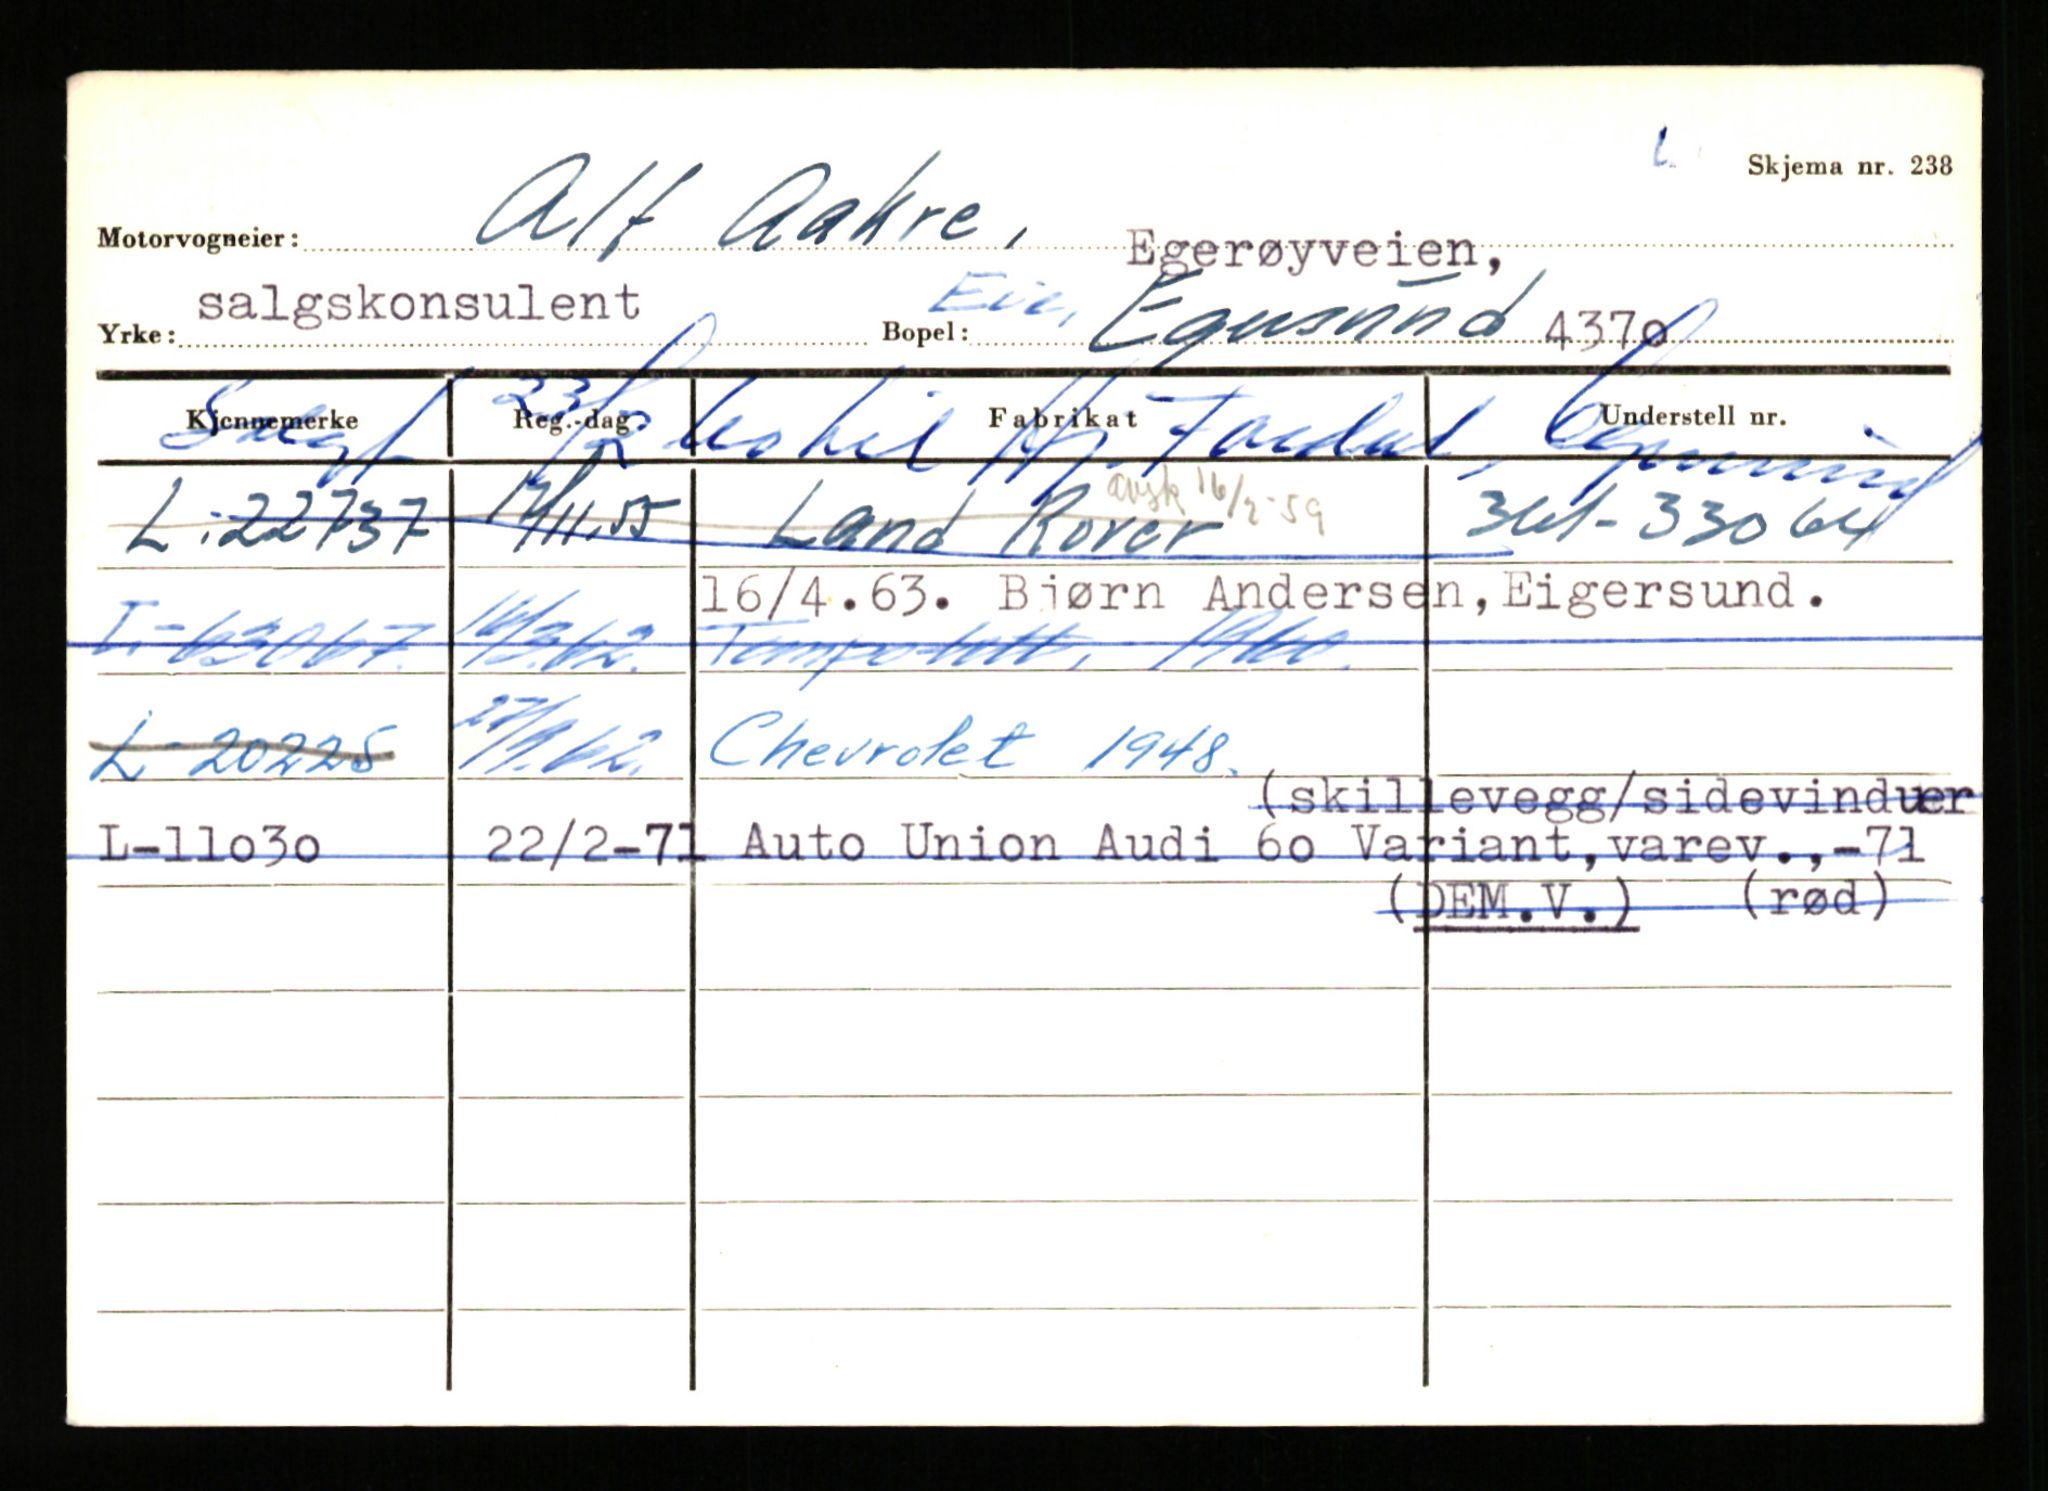 Skjema nr. 238
Motorvogneier: Alf Aakre, Egerøyveien,
Yrke: salgskonsulent Bopel: Egersund 4370
Kjennemerke Reg.-dag: Fabrikat Understell nr.
avsk 16/2-59
L-22737 17/11.55 Land Rover 361-33064
16/4.63. Bjørn Andersen,Eigersund.
L-63067. 16/3.62. Tempo-1960.
L-20225 27/9.62. Chevrolet 1948.
(skillevegg/sidevinduer
L-11030 22/2-71 Auto Union Audi 60 Variant,varev.,-71
(DEM.V.) (rød)